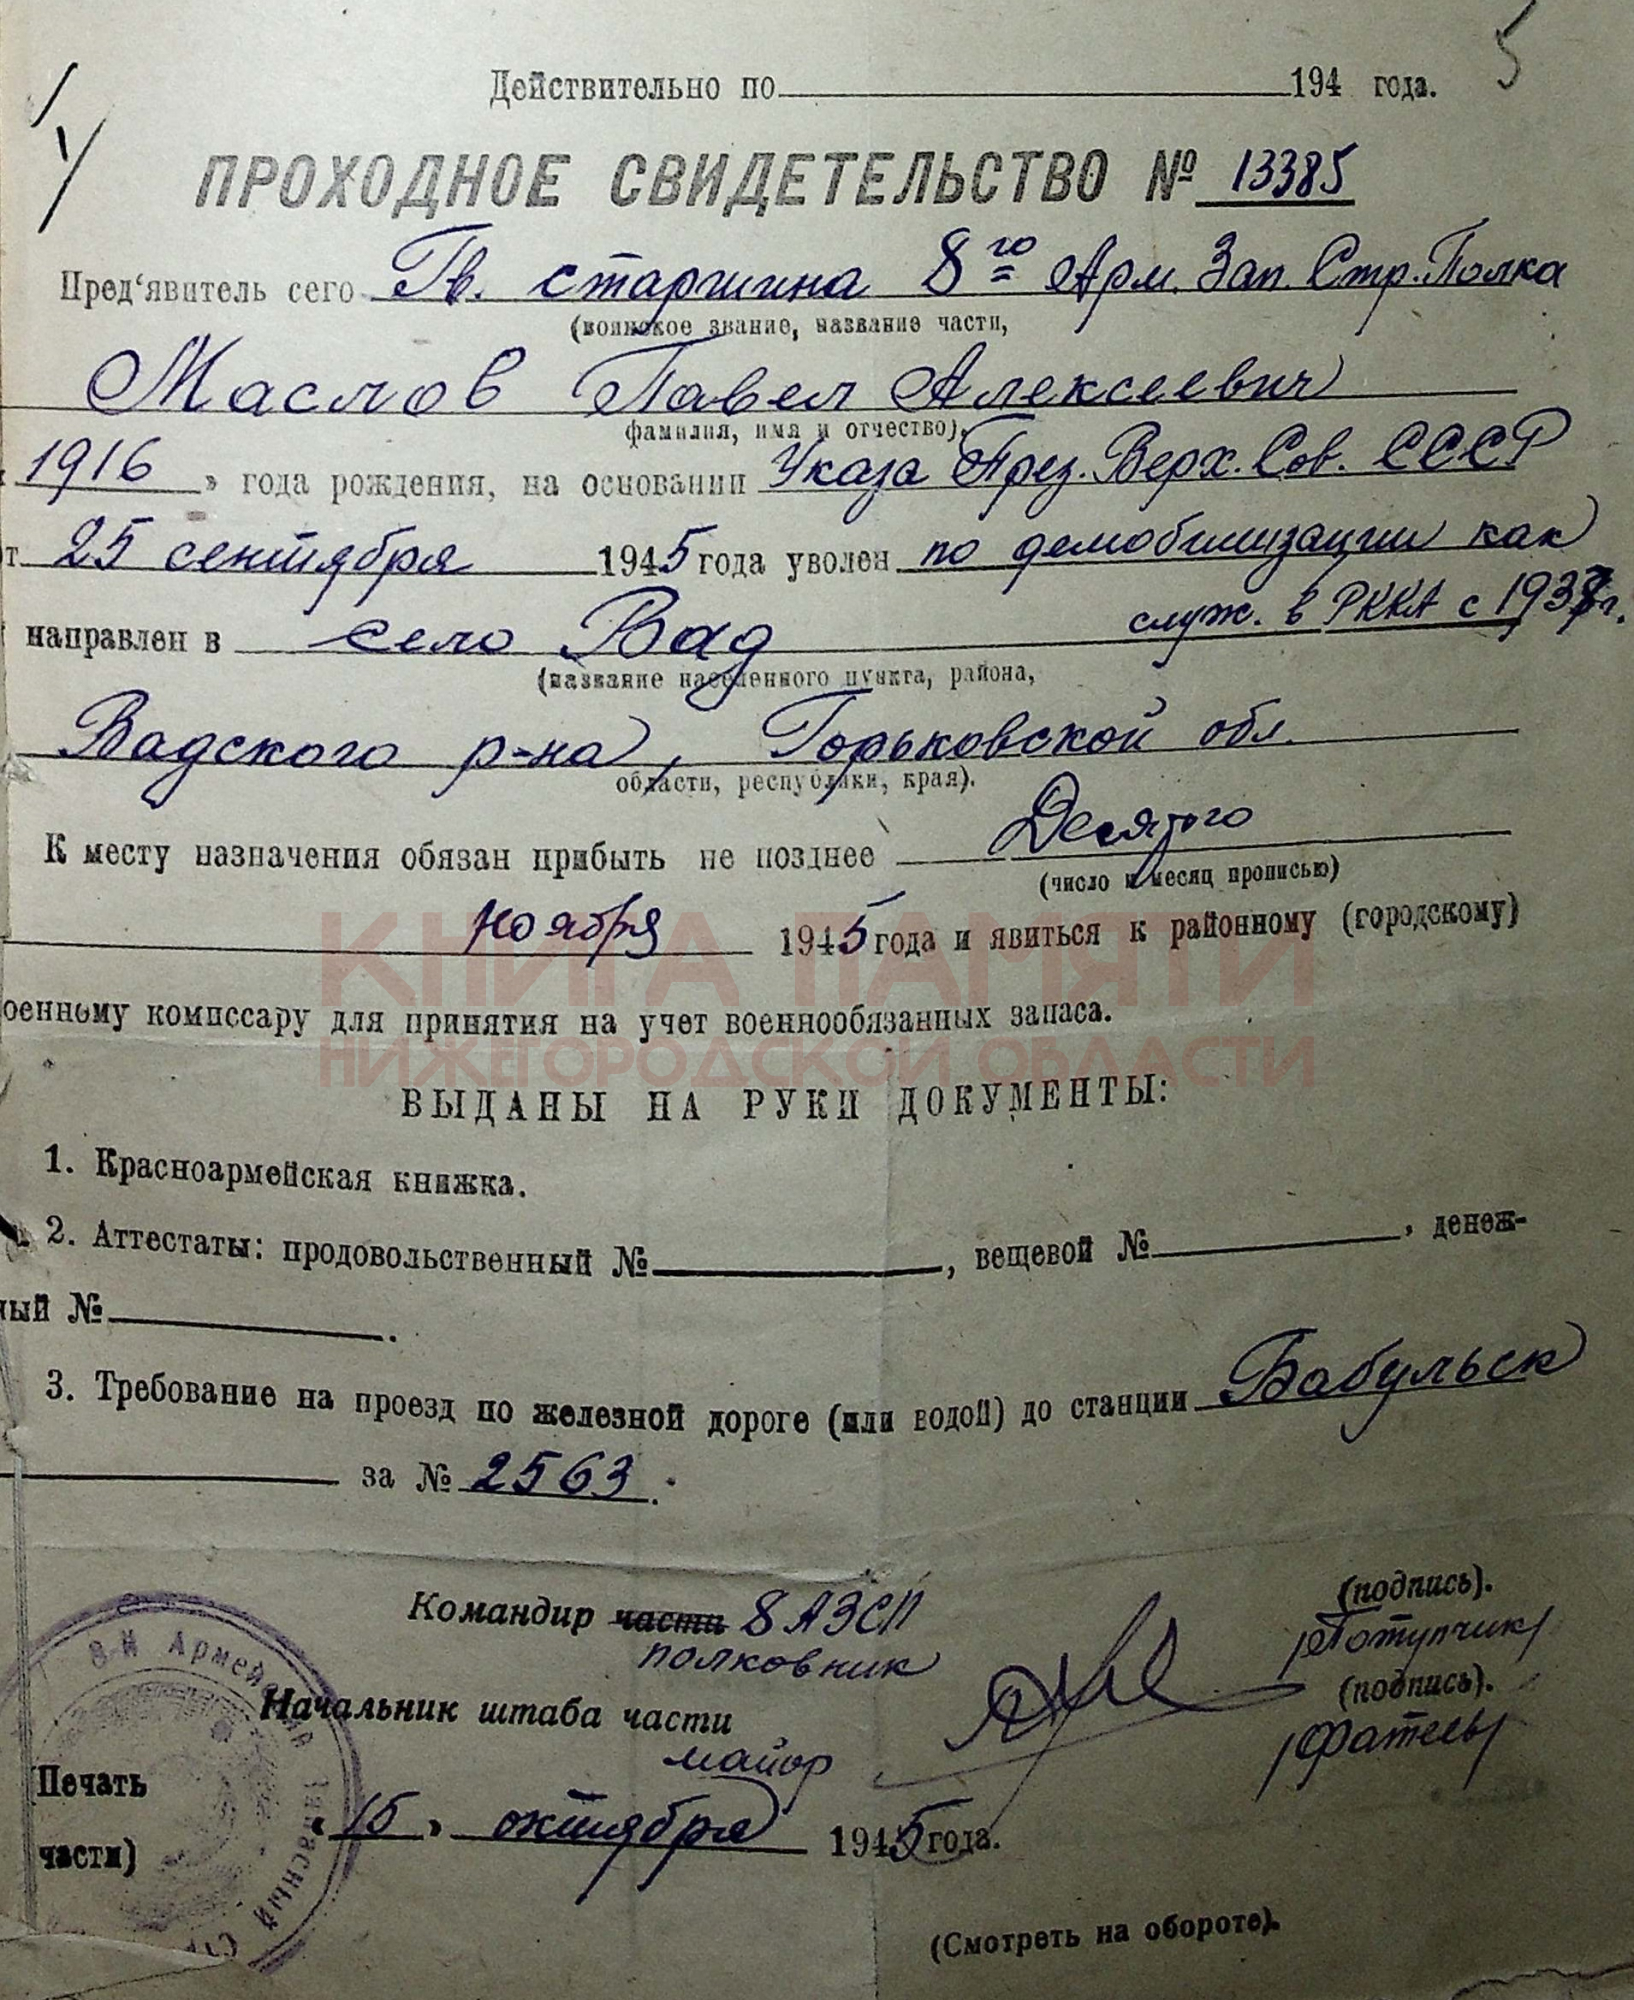 5
Действительно по 194 года.
ПРОХОДНОЕ СВИДЕТЕЛЬСТВО № 13385
Пред'явитель сего Гв. старшина 8го Арм. Зап. Стр. Полка
(воинское звание, название части,
Маслов Павел Алексеевич
фамилия, имя и отчество),
1916 » года рождения, на основании Указа През. Верх. Сов. СССР
т 25 сентября 1945 года уволен по демобилизации как
служ. в РККА с
направлен в село Вад
(название населенного пункта, района,
Вадского р-на, Горьковской обл.
области, республики, края).
К месту назначения обязан прибыть не позднее Десятого
(число и месяц прописью)
ноября 1945 года и явиться к районному (городскому)
оенному комиссару для принятия на учет военнообязанных запаса.
КНИГА ПАМЯТИ
НИЖЕГОРОДСКОЙ ОБЛАСТИ
ВЫДАНЫ НА РУКИ ДОКУМЕНТЫ:
1. Красноармейская книжка.
2. Аттестаты: продовольственный № , вещевой № , денеж-
ный № .
3. Требование на проезд по железной дороге (или водой) до станции Бабульск
за № 2563.
Командир части 8 АЗСП (подпись).
полковник /Потупчик/
Начальник штаба части (подпись).
майор /Фатеев/
Печать
части)
«15» октября 1945 года.
8-й Армейский Запасный
(Смотреть на обороте).